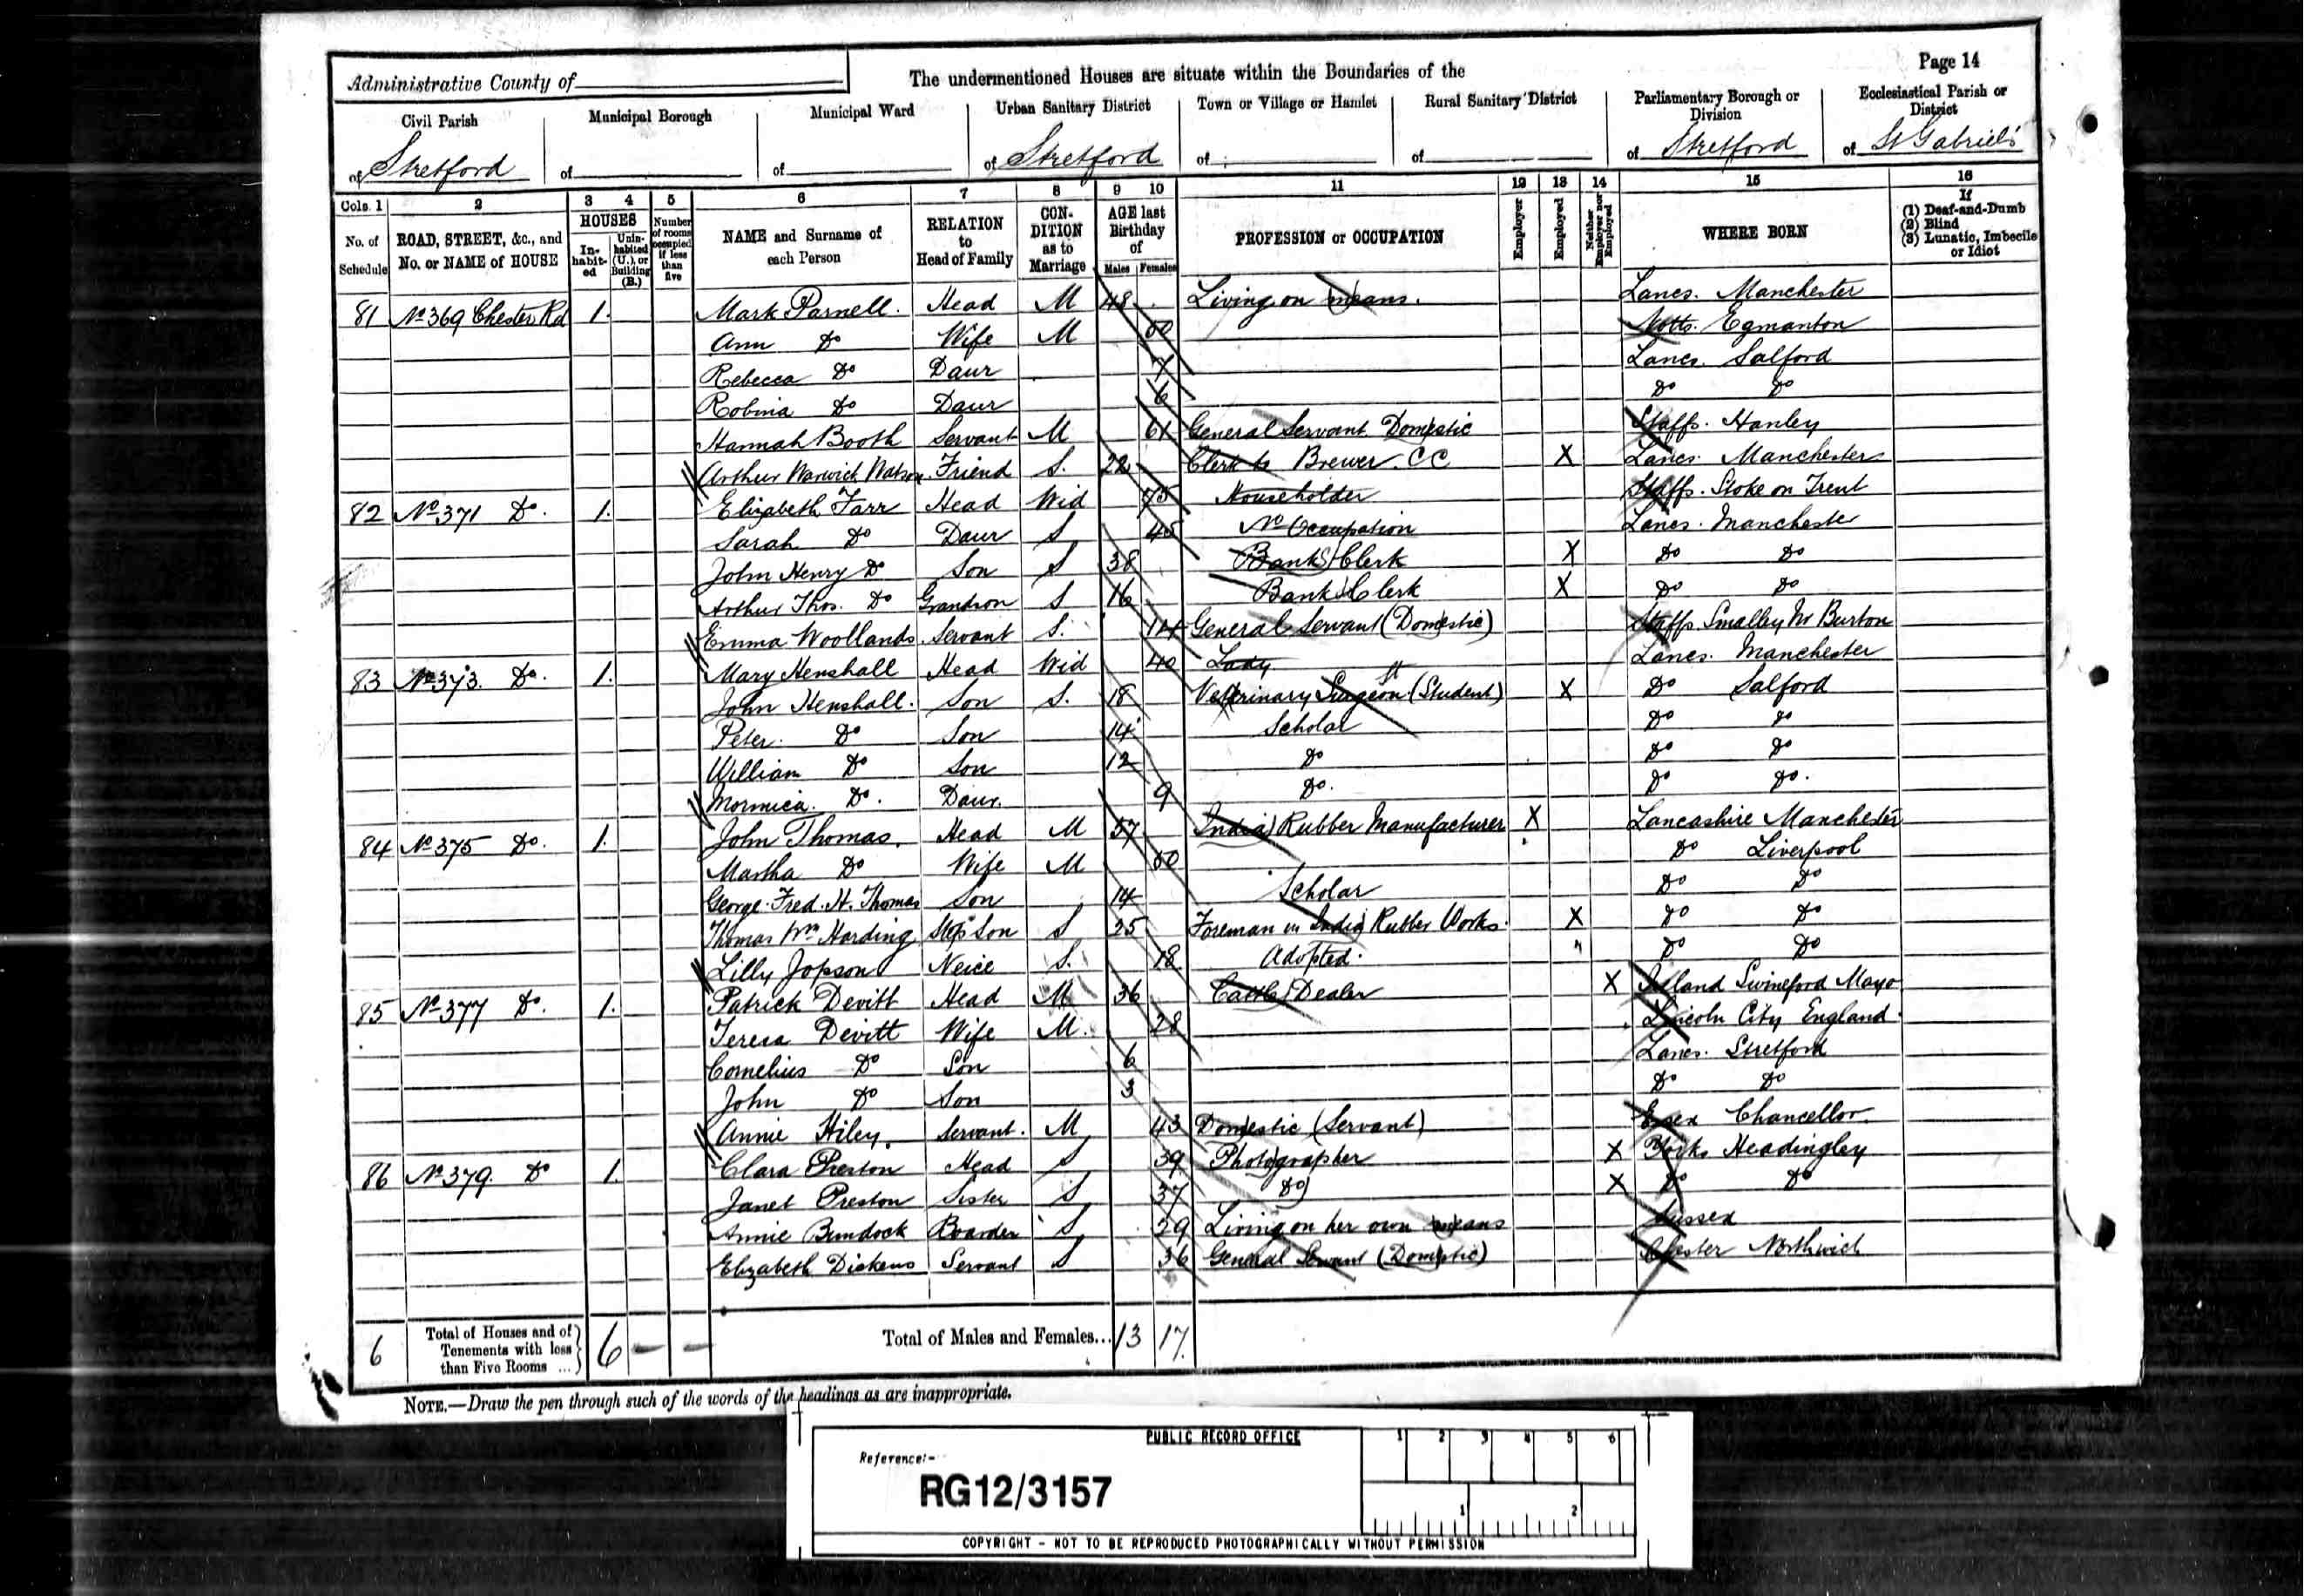 Page 14
Administrative County of
The undermentioned Houses are situate within the Boundaries of the
Civil Parish
of Stretford
Municipal Borough
of
Municipal Ward
of
Urban Sanitary District
of Stretford
Town or Village or Hamlet
of
Rural Sanitary District
of
Parliamentary Borough or Division
of Stretford
Ecclesiastical Parish or District
of St Gabriel's
Cols. 1 2 3 4 5 6 7 8 9 10 11 12 13 14 15 16
No. of Schedule
ROAD, STREET, &c., and No. or NAME of HOUSE
HOUSES
In-habit-ed
Unin-habited (U.), or Building (B.)
Number of rooms occupied if less than five
NAME and Surname of each Person
RELATION to Head of Family
CON-DITION as to Marriage
AGE last Birthday of
Males Females
PROFESSION or OCCUPATION
Employer
Employed
Neither Employer nor Employed
WHERE BORN
If
(1) Deaf-and-Dumb
(2) Blind
(3) Lunatic, Imbecile or Idiot
81 No 369 Chester Rd 1 Mark Parnell Head M 48 Living on means Lancs. Manchester
Ann Do Wife M 50 Notts. Egmanton
Rebecca Do Daur 7 Lancs. Salford
Robina Do Daur 6 Do Do
Hannah Booth Servant M 61 General Servant Domestic Staffs. Hanley
Arthur Warwick Watson Friend S. 22 Clerk to Brewer. CC X Lancs. Manchester
82 No 371 Do. 1. Elizabeth Farr Head Wid 73 Householder Staffs. Stoke on Trent
Sarah Do Daur S 45 No Occupation Lancs. Manchester
John Henry Do Son S 38 Banks Clerk X Do Do
Arthur Thos. Do Grandson S 16 Bank Clerk X Do Do
Emma Woollands Servant S. 14 General Servant (Domestic) Staffs. Smalley Nr Burton
83 No 373. Do. 1. Mary Henshall Head Wid 40 Lady Lancs. Manchester
John Henshall. Son S. 18 Veterinary Surgeon (Student) st X Do Salford
Peter. Do Son 14 Scholar Do Do
William Do Son 12 Do Do Do
Mormica. Do. Daur. 9 Do. Do Do.
84 No 375 Do. 1. John Thomas. Head M 57 India Rubber Manufacturer X Lancashire Manchester
Martha Do Wife M 50 Do Liverpool
George Fred. H. Thomas Son 14 Scholar Do Do
Thomas Wm Harding Step Son S 25 Foreman in India Rubber Works. X Do Do
Lilly Jopson Neice S. 18 Adopted. " Do Do
85 No 377 Do. 1. Patrick Devitt Head M 36 Cattle Dealer X Ireland Swineford Mayo
Teresa Devitt Wife M. 28 Lincoln City England
Cornelius Do Son 6 Lancs. Stretford
John Do Son 3 Do Do
Annie Hiley. Servant. M 43 Domestic (Servant) Essex Chancellor
86 No 379. Do 1. Clara Preston Head S 39 Photographer X Yorks Headingley
Janet Preston Sister S 37 Do X Do Do
Annie Bundock Boarder S 29 Living on her own means Sussex
Elizabeth Dickens Servant S 36 General Servant (Domestic) Chester Northwich
6 Total of Houses and of Tenements with less than Five Rooms ... 6 Total of Males and Females... 13 17
NOTE.—Draw the pen through such of the words of the headings as are inappropriate.
PUBLIC RECORD OFFICE
1 2 3 4 5 6
Reference:-
RG12/3157
1 2
COPYRIGHT - NOT TO BE REPRODUCED PHOTOGRAPHICALLY WITHOUT PERMISSION